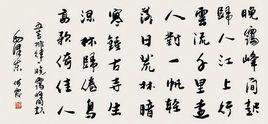 晚靄峰間起
歸人江上行
雲流千里遠
人對一帆輕
落日荒林暗
寒鐘古寺生
深林歸倦鳥
高歌倚佳人
晚靄峰間起
毛澤東